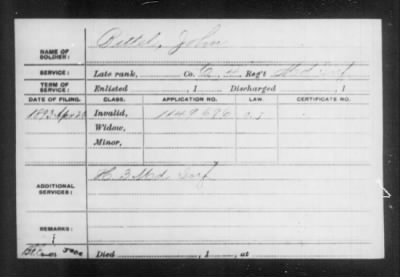 NAME OF SOLDIER: Dittel, John
SERVICE: Late rank, Co. Reg't Md Inf
TERM OF SERVICE: Enlisted , 1 Discharged , 1
DATE OF FILING. CLASS. APPLICATION NO. LAW. CERTIFICATE NO.
1893 Invalid,
Widow,
Minor,
ADDITIONAL SERVICES: H 3 Md Inf
REMARKS:
Died , 1 , at